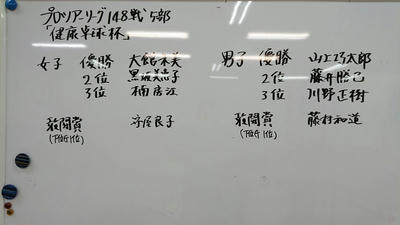 プロツアーリーグ148戦 5部
「健康卓球杯」
女子 優勝 大館木美 男子 優勝 山上巧太郎
2位 黒坂美恵子 2位 藤井勝己
3位 楠房江 3位 川野正樹
敢闘賞 守屋良子 敢闘賞 藤村和道
(下位1位) (下位1位)